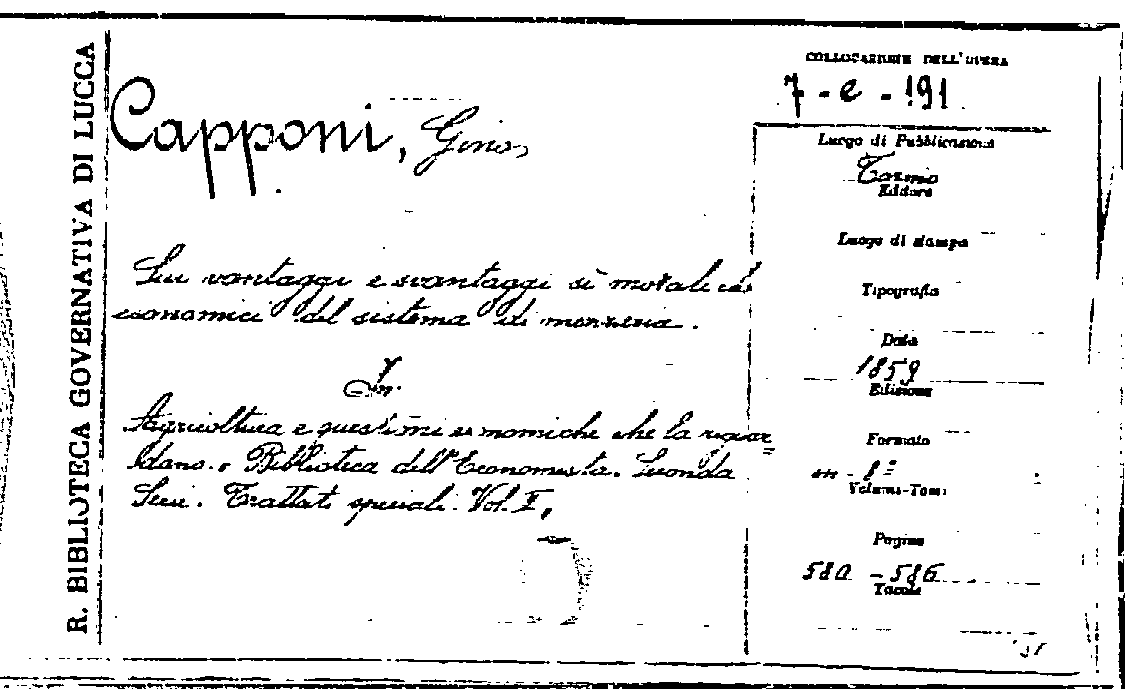 R. BIBLIOTECA GOVERNATIVA DI LUCCA
Capponi, Gino
Sui vantaggi e svantaggi sì morali ed
economici del sistema di mezzeria.
In
Agricoltura e questioni economiche che la riguar=
dano. Biblioteca dell'Economista. Seconda
Serie. Trattati speciali. Vol. II,
COLLOCAZIONE DELL'OPERA
7 - e - 191
Luogo di Pubblicazione
Torino
Editore
Luogo di stampa
Tipografia
Data
1859
Edizione
Formato
in - 8°
Volume-Tomi
Pagine
580 - 586
Tavole